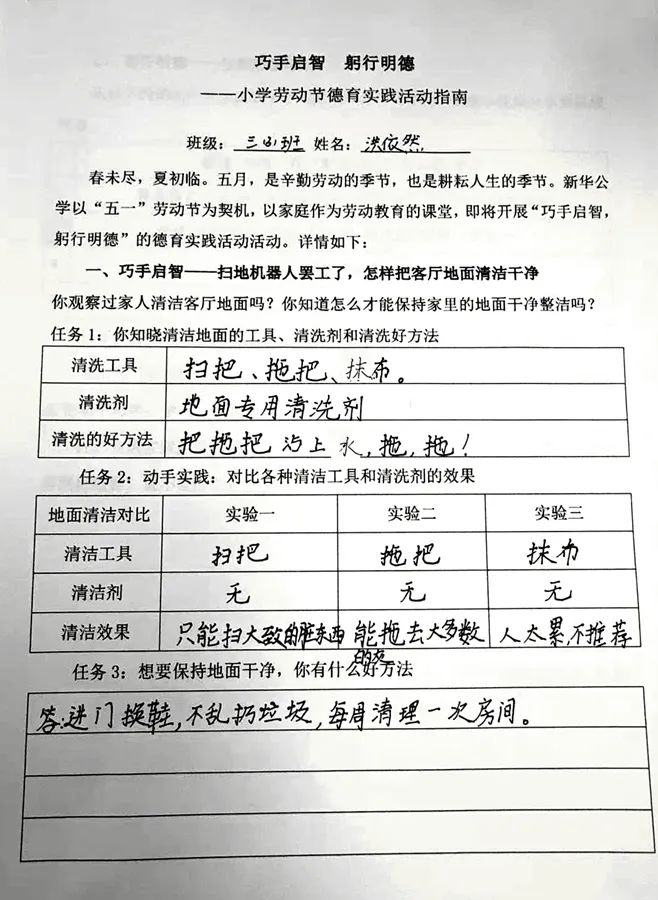 巧手启智 躬行明德
——小学劳动节德育实践活动指南
班级：三(3)班 姓名：洪依然
春未尽，夏初临。五月，是辛勤劳动的季节，也是耕耘人生的季节。新华公
学以“五一”劳动节为契机，以家庭作为劳动教育的课堂，即将开展“巧手启智，
躬行明德”的德育实践活动活动。详情如下：
一、巧手启智——扫地机器人罢工了，怎样把客厅地面清洁干净
你观察过家人清洁客厅地面吗？你知道怎么才能保持家里的地面干净整洁吗？
任务1：你知晓清洁地面的工具、清洗剂和清洗好方法
清洗工具 扫把、拖把、抹布。
清洗剂 地面专用清洗剂
清洗的好方法 把拖把沾上水，拖，拖！
任务2：动手实践：对比各种清洁工具和清洗剂的效果
地面清洁对比 实验一 实验二 实验三
清洁工具 扫把 拖把 抹布
清洁剂 无 无 无
清洁效果 只能扫大致的脏东西 能拖去大多数的灰 人太累，不推荐
任务3：想要保持地面干净，你有什么好方法
答：进门换鞋，不乱扔垃圾，每周清理一次房间。